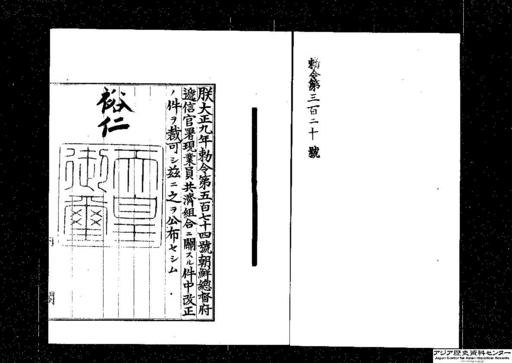 勅令第三百二十號
朕大正九年勅令第五百七十四號朝鮮總督府
遞信官署現業員共濟組合ニ關スル件中改正
ノ件ヲ裁可シ茲ニ之ヲ公布セシム
裕仁
天皇
御璽
内閣
アジア歴史資料センター
Japan Center for Asian Historical Records